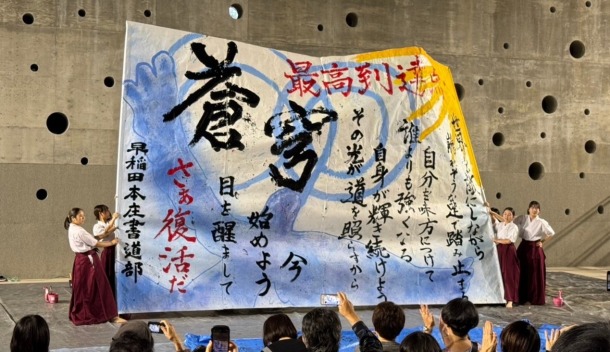 最高到達
蒼穹
にしながら
踏み止ま
自分を味方につけて
誰よりも強くなる
自身が輝き続けよう
その光が道を照らすから
今
始めよう
目を醒まして
さぁ復活だ
早稲田本庄書道部